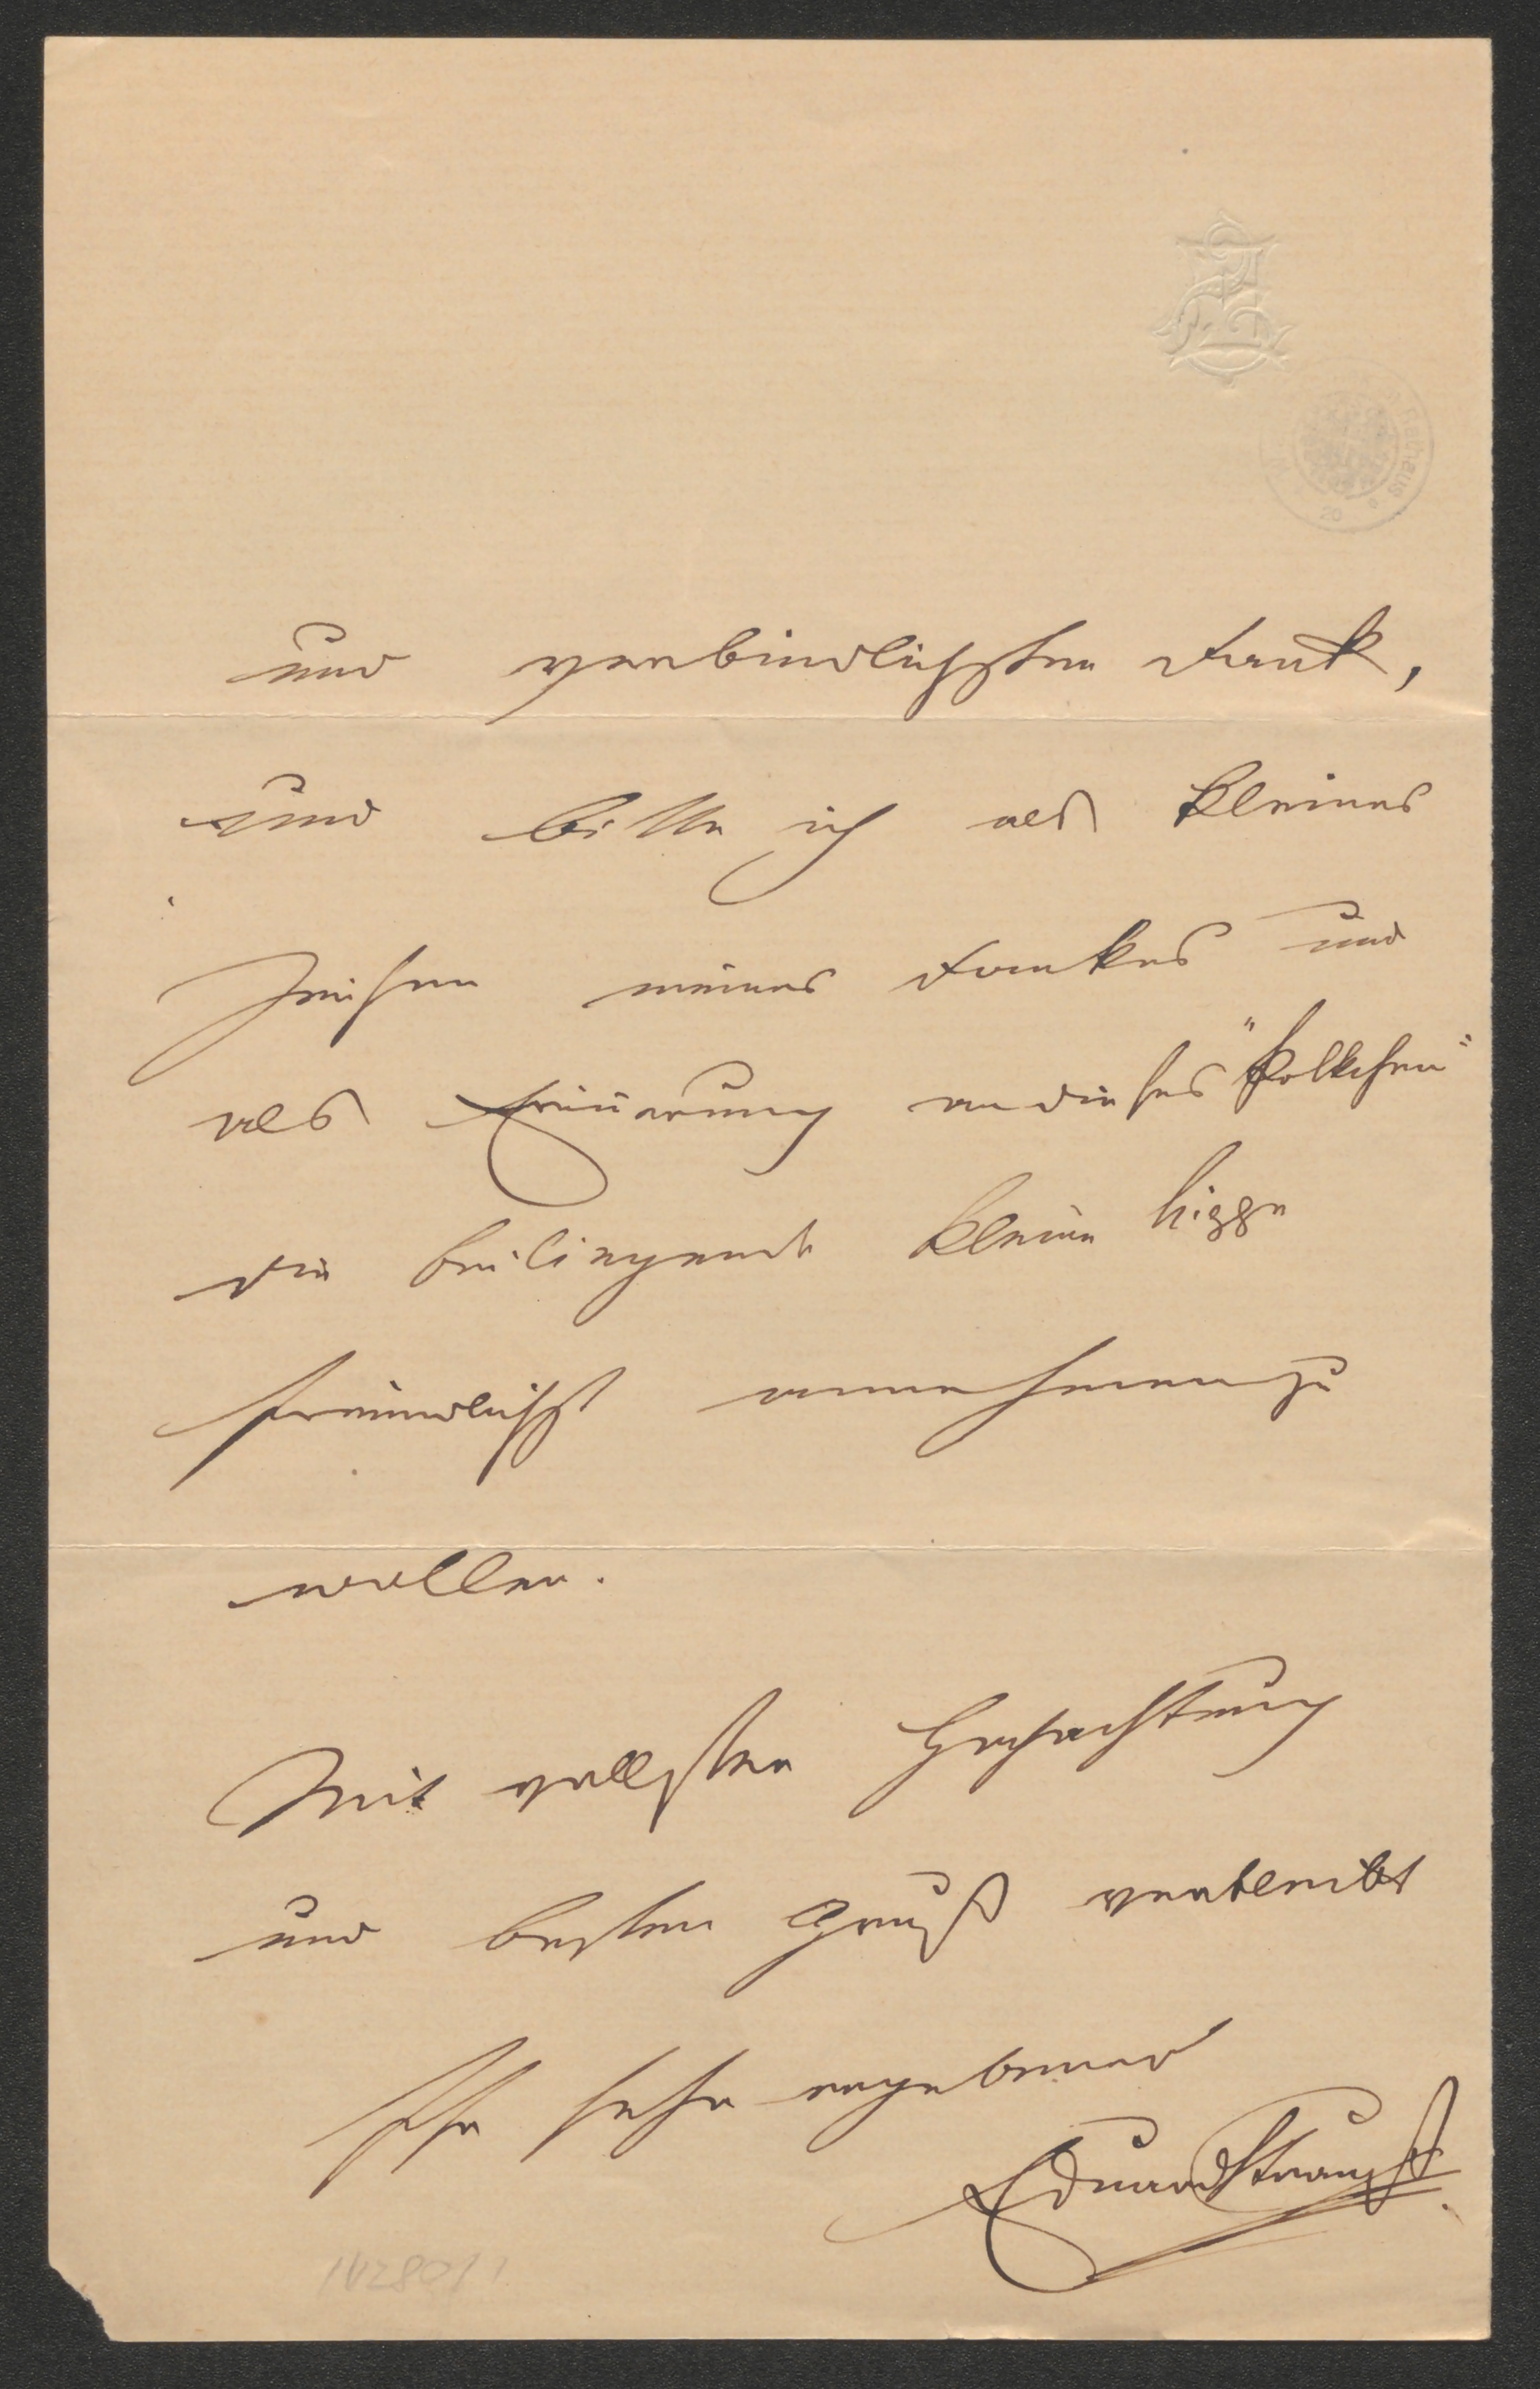 und verbindlichsten Dank,
und bitte ich als kleines
Zeichen meines Dankes und
als Erinnerung an dieses
die beiliegende kleine
freundlichst annehmen zu
wollen.
Mit vollster Hochachtung
und besten Gruß verbleibt
Ihr sehr ergebener
Eduard Strauß